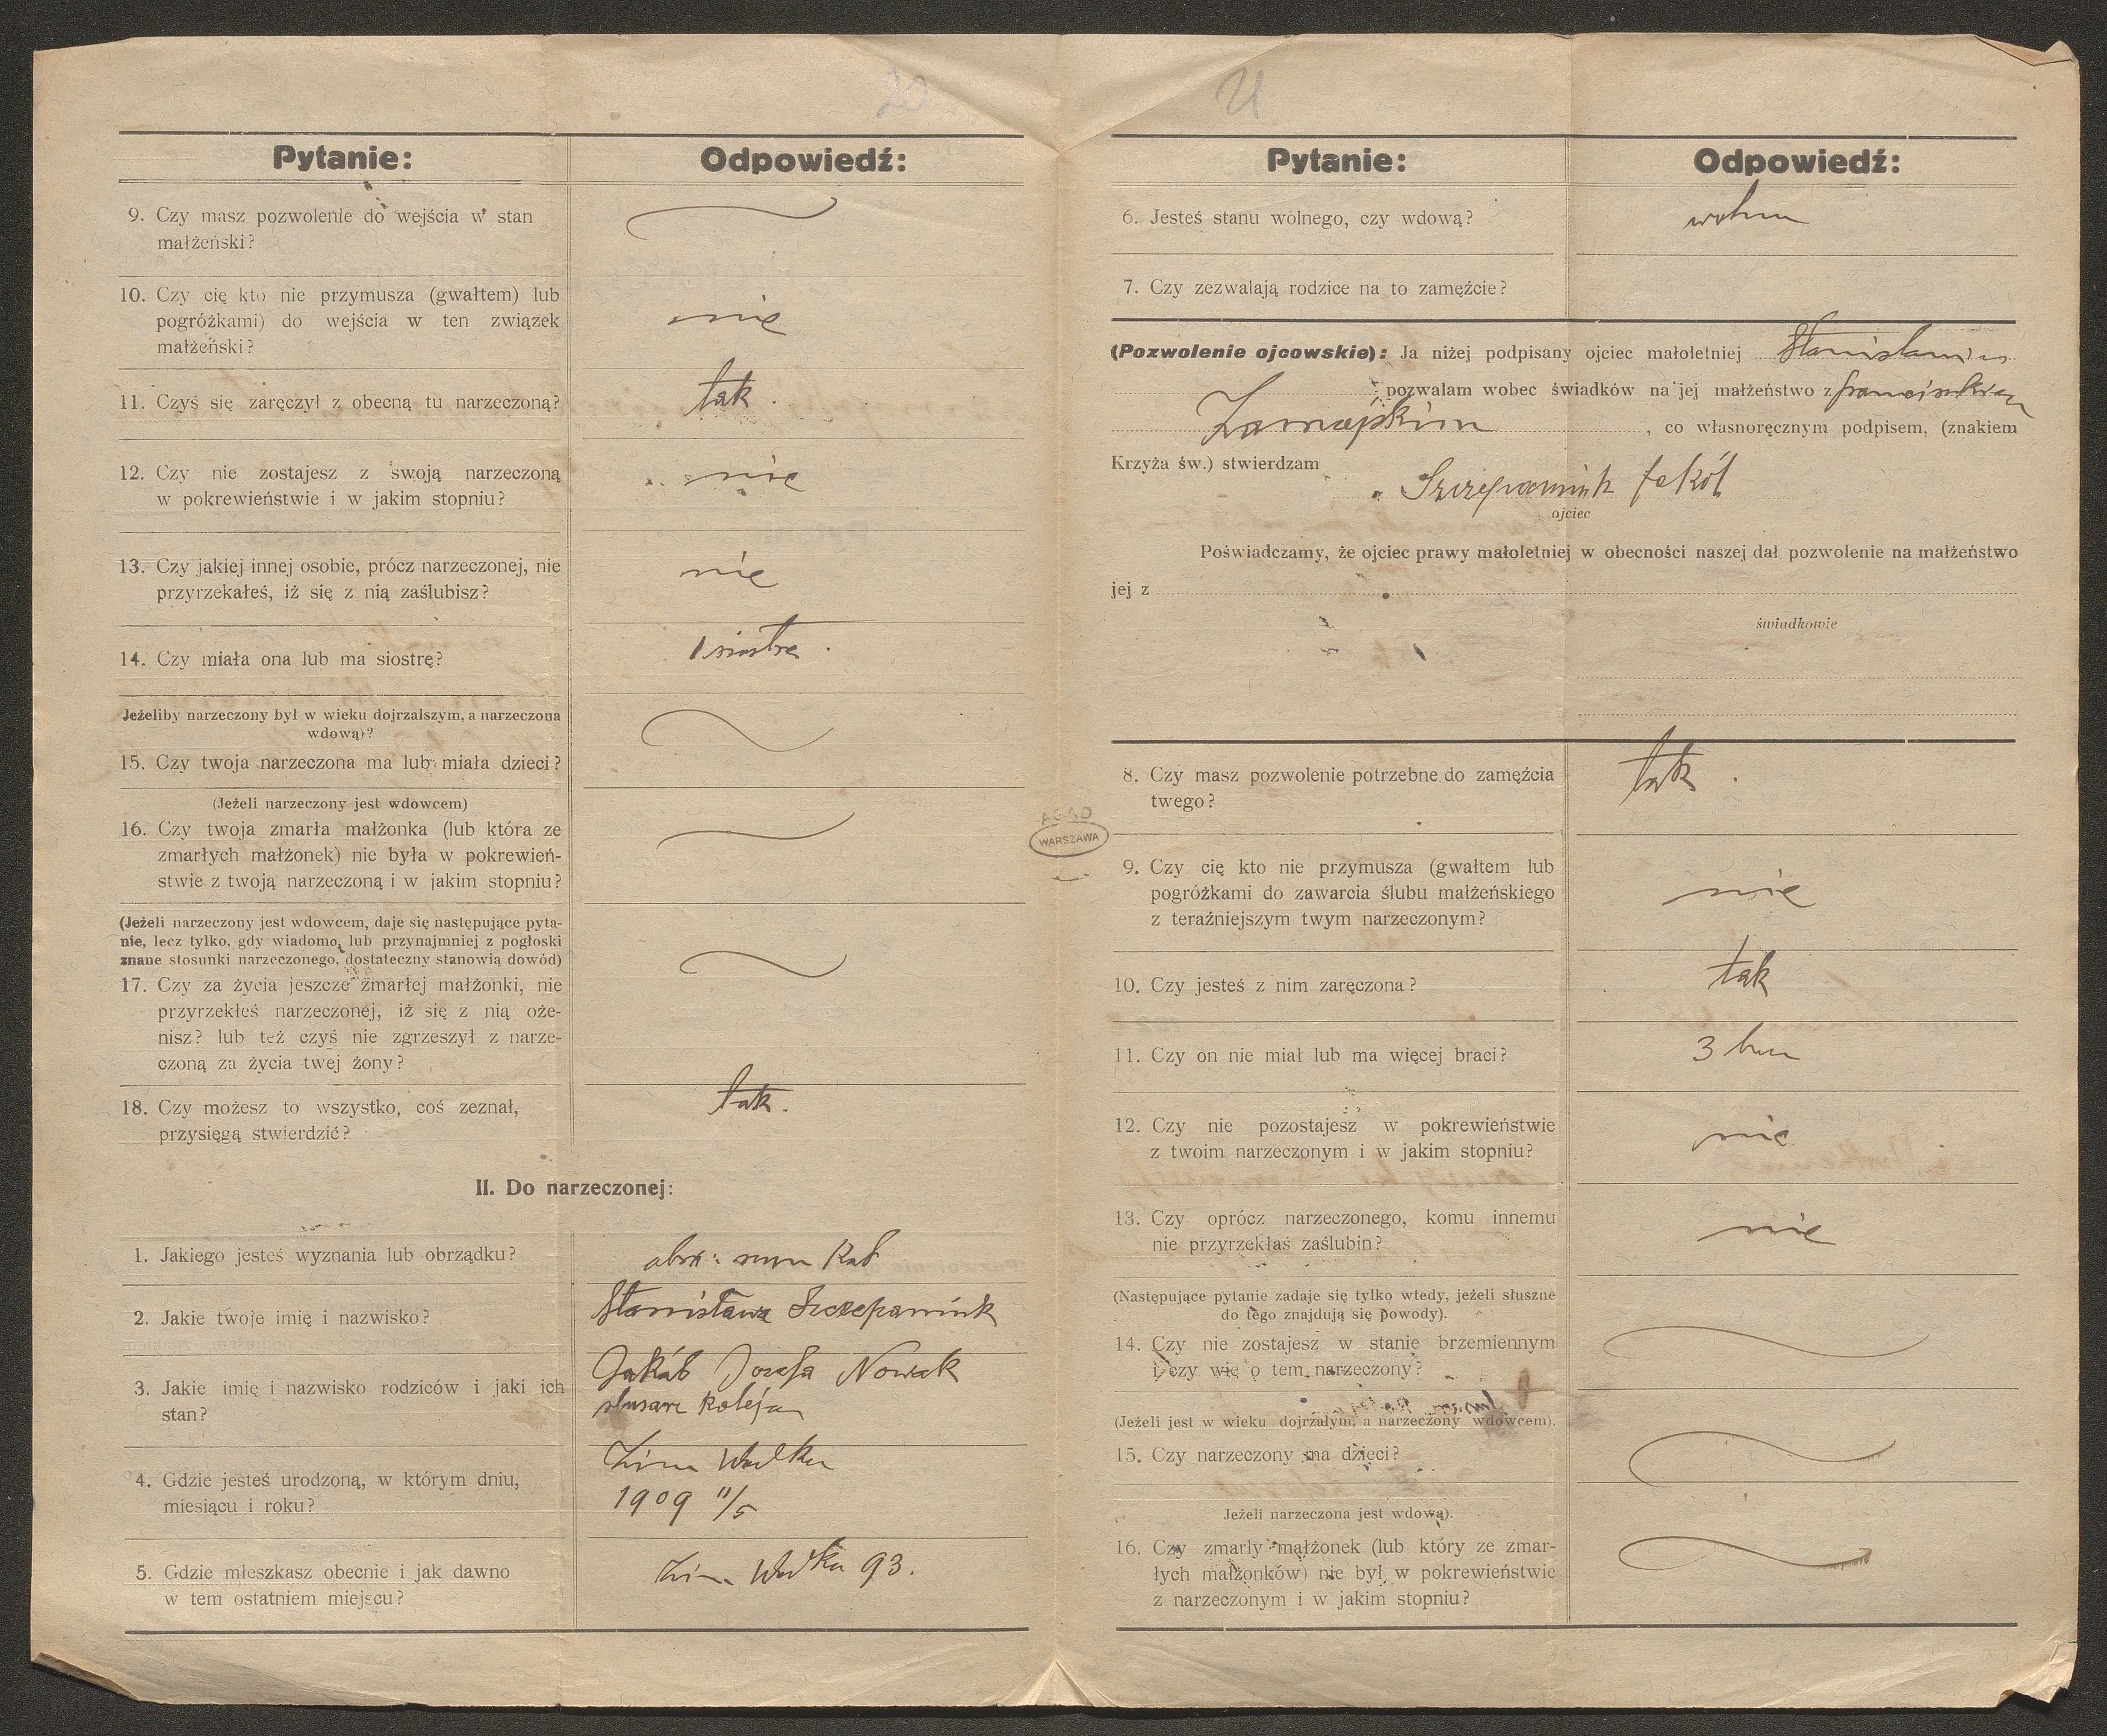 20
Pytanie:
Odpowiedź:
9. Czy masz pozwolenie do wejścia w stan
małżeński?
10. Czy cię kto nie przymusza (gwałtem) lub
pogróżkami) do wejścia w ten związek
małżeński?
nie
11. Czyś się zaręczył z obecną tu narzeczoną?
tak.
12. Czy nie zostajesz z swoją narzeczoną
w pokrewieństwie i w jakim stopniu?
nie
13. Czy jakiej innej osobie, prócz narzeczonej, nie
przyrzekałeś, iż się z nią zaślubisz?
nie
14. Czy miała ona lub ma siostrę?
1 siostra.
Jeżeliby narzeczony był w wieku dojrzalszym, a narzeczona
wdową)?
15. Czy twoja narzeczona ma lub miała dzieci?
(Jeżeli narzeczony jest wdowcem)
16. Czy twoja zmarła małżonka (lub która ze
zmarłych małżonek) nie była w pokrewień-
stwie z twoją narzeczoną i w jakim stopniu?
(Jeżeli narzeczony jest wdowcem, daje się następujące pyta-
nie, lecz tylko, gdy wiadomo, lub przynajmniej z pogłoski
znane stosunki narzeczonego, dostateczny stanowią dowód)
17. Czy za życia jeszcze zmarłej małżonki, nie
przyrzekłeś narzeczonej, iż się z nią oże-
nisz? lub też czyś nie zgrzeszył z narze-
czoną za życia twej żony?
18. Czy możesz to wszystko, coś zeznał,
przysięgą stwierdzić?
tak.
II. Do narzeczonej:
1. Jakiego jesteś wyznania lub obrządku?
obrz: rzym Kat
2. Jakie twoje imię i nazwisko?
Stanisława Szczepaniuk
3. Jakie imię i nazwisko rodziców i jaki ich
stan?
Jakób Józefa Nowak
4. Gdzie jesteś urodzoną, w którym dniu,
miesiącu i roku?
Zimn Wodka
1909 11/5
5. Gdzie mieszkasz obecnie i jak dawno
w tem ostatniem miejscu?
Wodka 93.
21
Pytanie:
Odpowiedź:
6. Jesteś stanu wolnego, czy wdową?
wolna
7. Czy zezwalają rodzice na to zamęźcie?
(Pozwolenie ojcowskie): Ja niżej podpisany ojciec małoletniej Stanisławy
pozwalam wobec świadków na jej małżeństwo z Franciszkiem
, co własnoręcznym podpisem, (znakiem
Krzyża św.) stwierdzam
Szczepaniuk Jakób
ojciec
Poświadczamy, że ojciec prawy małoletniej w obecności naszej dał pozwolenie na małżeństwo
jej z
świadkowie
8. Czy masz pozwolenie potrzebne do zamęźcia
twego?
tak.
AGAD
WARSZAWA
9. Czy cię kto nie przymusza (gwałtem lub
pogróżkami do zawarcia ślubu małżeńskiego
z teraźniejszym twym narzeczonym?
nie
10. Czy jesteś z nim zaręczona?
tak
11. Czy on nie miał lub ma więcej braci?
3 braci
12. Czy nie pozostajesz w pokrewieństwie
z twoim narzeczonym i w jakim stopniu?
nie
13. Czy oprócz narzeczonego, komu innemu
nie przyrzekłaś zaślubin?
nie
(Następujące pytanie zadaje się tylko wtedy, jeżeli słuszne
do tego znajdują się powody).
14. Czy nie zostajesz w stanie brzemiennym
i czy wie o tem narzeczony?
(Jeżeli jest w wieku dojrzałym, a narzeczony wdowcem).
15. Czy narzeczony ma dzieci?
Jeżeli narzeczona jest wdową).
16. Czy zmarły małżonek (lub który ze zmar-
łych małżonków) nie był w pokrewieństwie
z narzeczonym i w jakim stopniu?